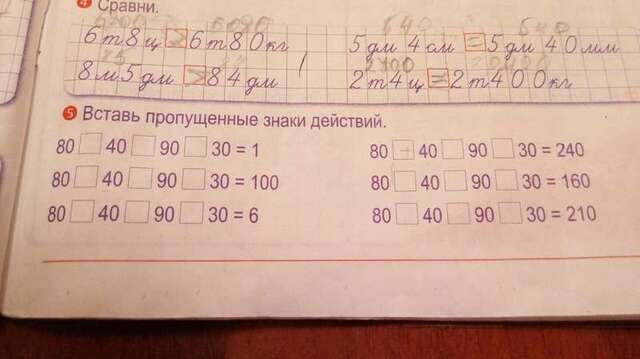 4 Сравни.
6т8ц > 6т80кг 5дм4см = 5дм40мм
8м5дм > 84дм 2т4ц = 2т400кг
5 Вставь пропущенные знаки действий.
80 □ 40 □ 90 □ 30 = 1 80 + 40 □ 90 □ 30 = 240
80 □ 40 □ 90 □ 30 = 100 80 □ 40 □ 90 □ 30 = 160
80 □ 40 □ 90 □ 30 = 6 80 □ 40 □ 90 □ 30 = 210